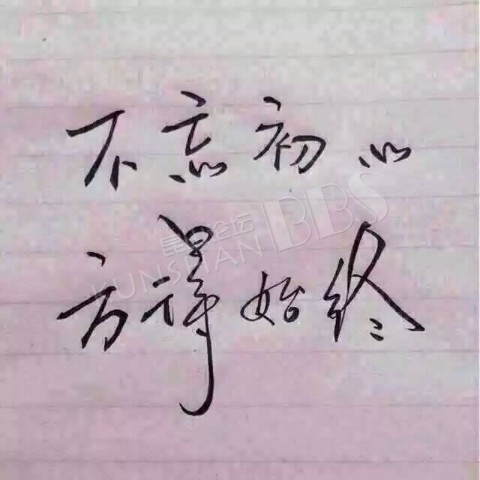 不忘初心
方得始终
昆山论坛
KUNSHAN BBS